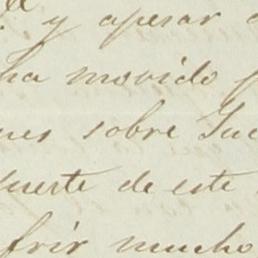 y apesar
ha movido
sobre
suerte de este
frir mucho